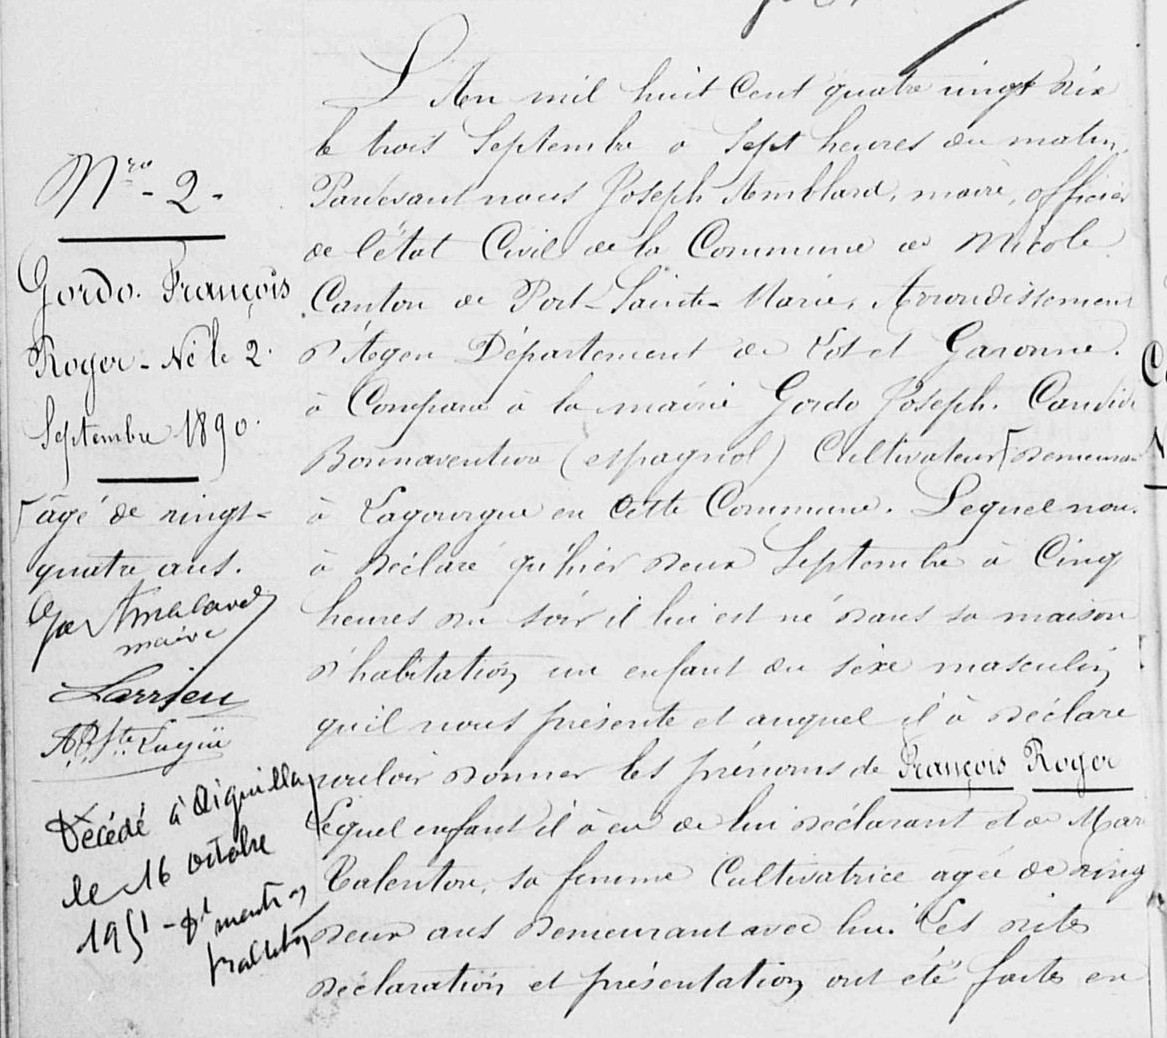 Nro - 2 -
Gordo. François
Roger - Né le 2
Septembre 1890.
âgé de vingt-
quatre ans.
maire
Larrieu
Décédé à Aiguillon
le 16 octobre
1951 -
L'An mil huit Cent quatre vingt dix
le trois Septembre à Sept heures du matin.
Pardevant nous Joseph Amblard, maire, officier
de l'état Civil de la Commune de Nicole
Canton de Port-Sainte-Marie, Arrondissement
d'Agen Département de Lot et Garonne.
à Comparu à la mairie Gordo Joseph. Candide
Bonnaventura (espagnol) Cultivateur demeurant
à Lagourgue en Cette Commune. Lequel nous
à déclaré qu'hier deux Septembre à Cinq
heures du soir il lui est né dans sa maison
d'habitation un enfant du sexe masculin
qu'il nous présente et auquel il à déclaré
vouloir donner les prénoms de François Roger
Lequel enfant il à eu de lui déclarant et de Mari
Talenton, sa femme Cultivatrice agée de ving
deux ans demeurant avec lui. Les dites
déclaration et présentation ont été faites en